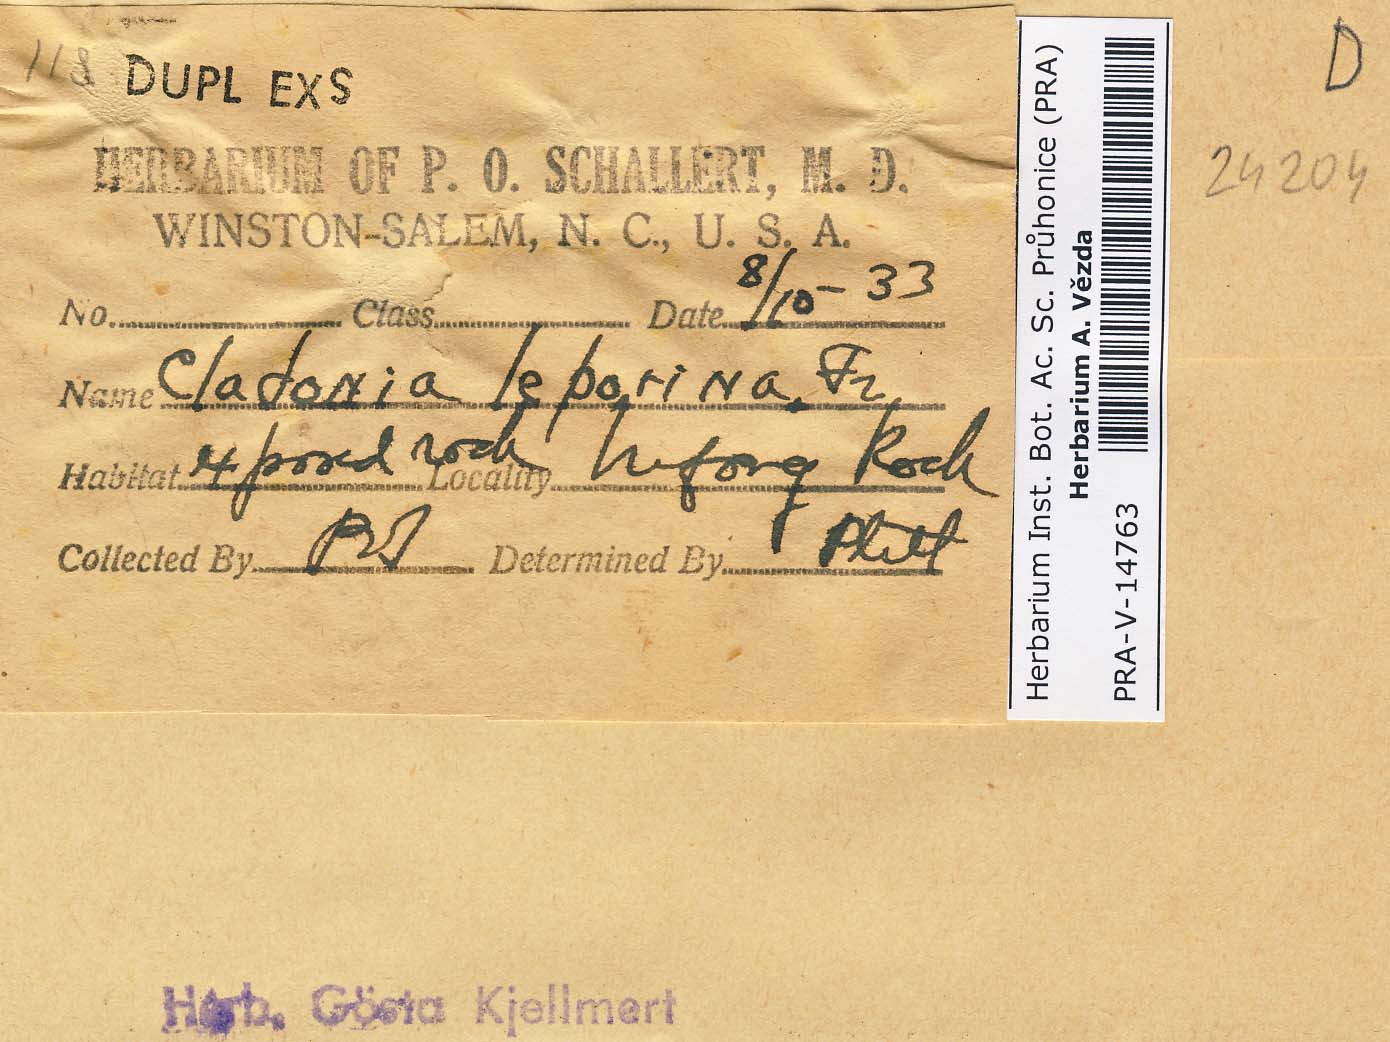 118 DUPL EXS
HERBARIUM OF P. O. SCHALLERT, M. D.
WINSTON-SALEM, N. C., U. S. A.
No. Class Date 8/10-33
Name Cladonia leporina, Fr.
Habitat exposed rock Locality Rock
Collected By Determined By Plitt
Herb. Gösta Kjellmert
Herbarium Inst. Bot. Ac. Sc. Průhonice (PRA)
Herbarium A. Vězda
PRA-V-14763
D
24204